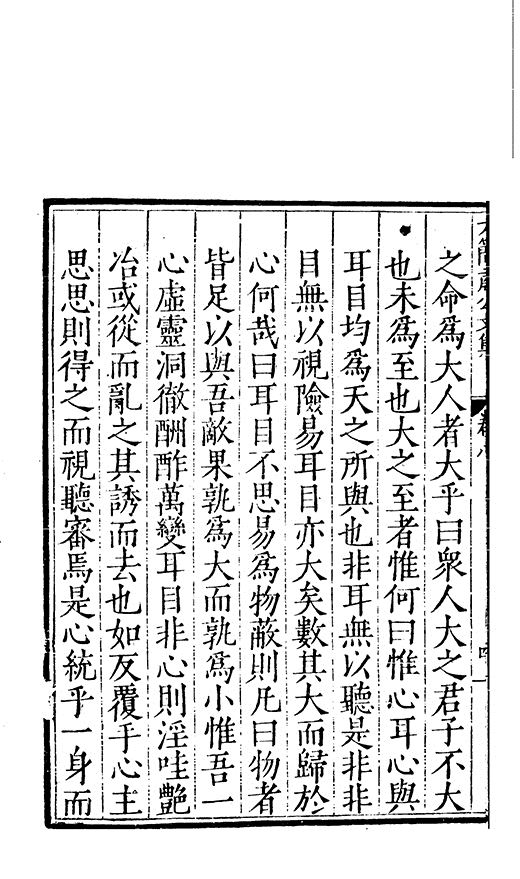 之命爲大人者大乎曰衆人大之君子不大
也未爲至也大之至者惟何曰惟心耳心與
耳目均爲天之所與也非耳無以聽是非非
目無以視險易耳目亦大矣數其大而歸於
心何哉曰耳目不思易爲物蔽則凡曰物者
皆足以與吾敵果孰爲大而孰爲小惟吾一
心虛靈洞徹酬酢萬變耳目非心則淫哇艷
冶或從而亂之其誘而去也如反覆手心主
思思則得之而視聽審焉是心統乎一身而